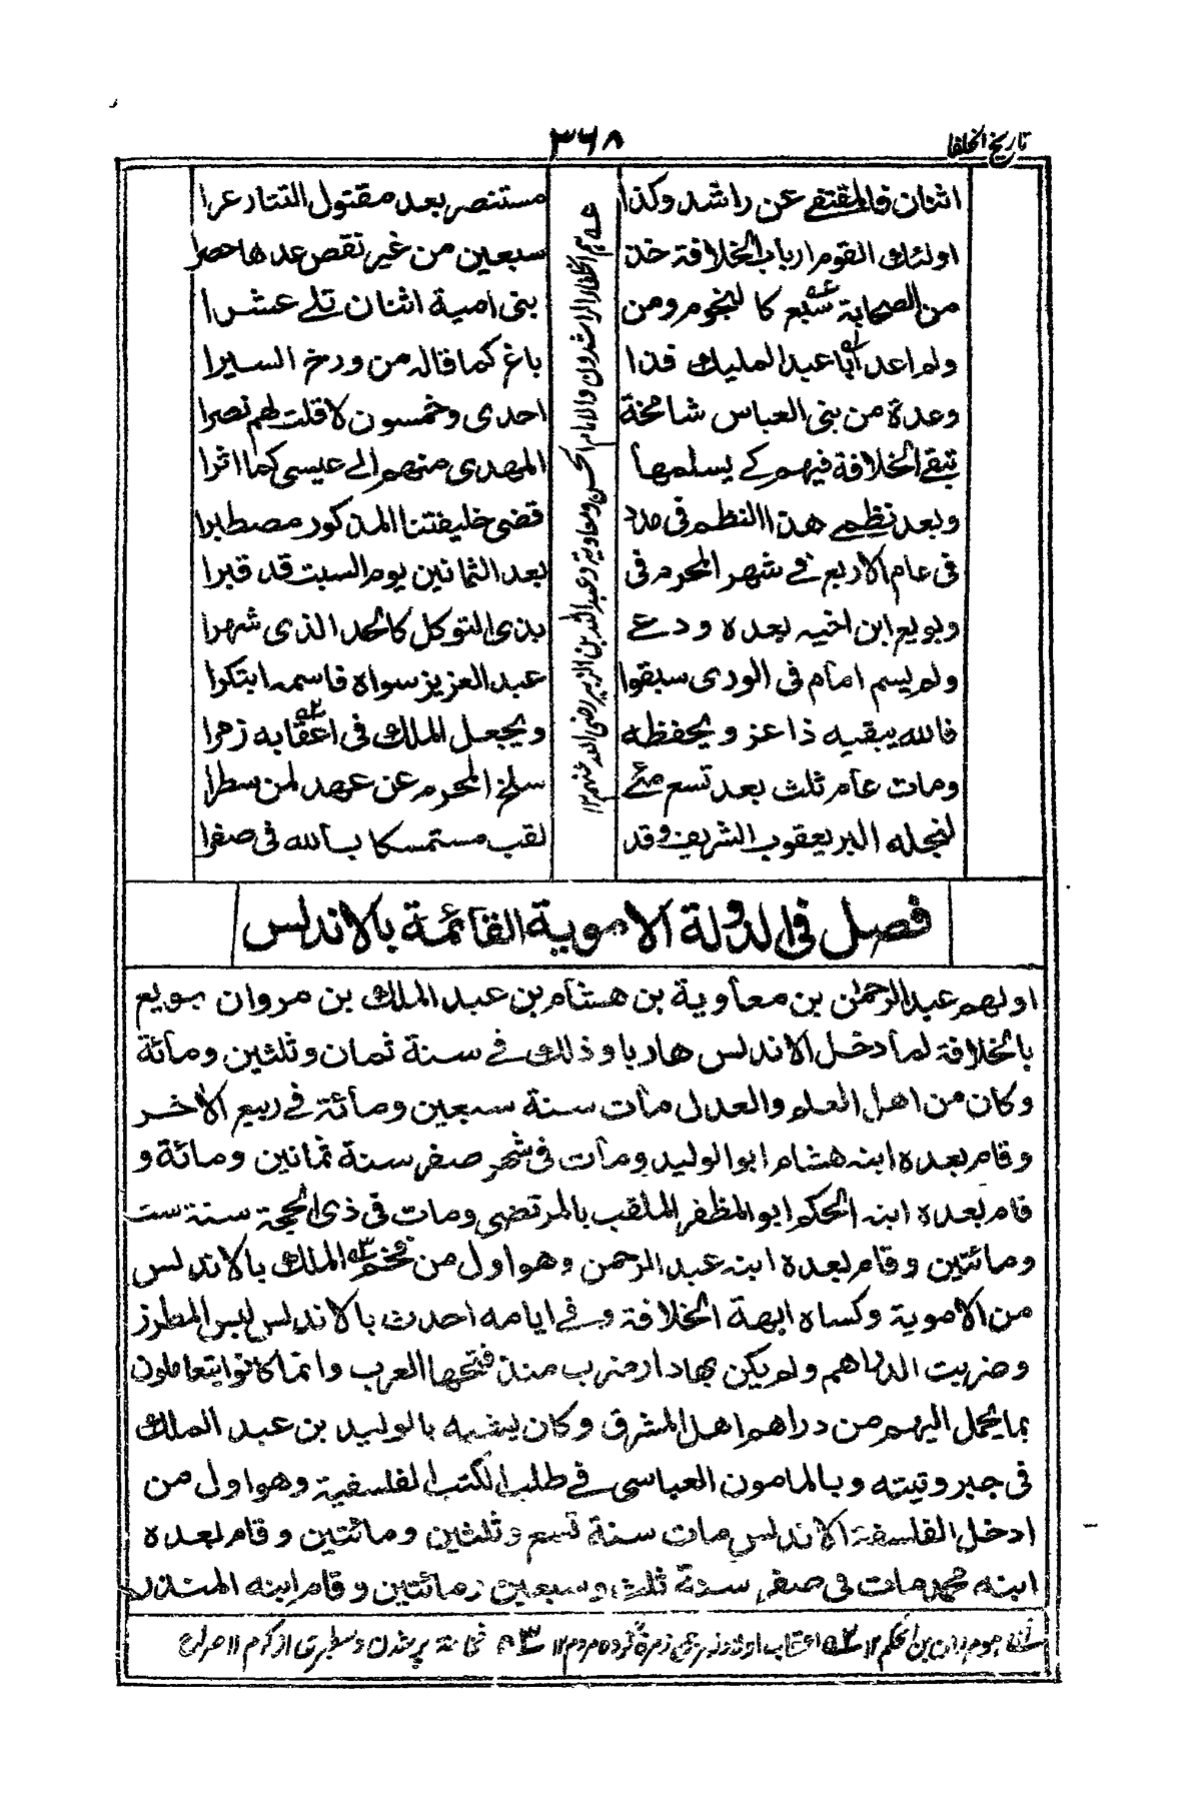 تاريخ الخلفا
٣٦٨
اثنان فالمقتفے عن راشد وكذا مستنصر بعد مقتول التتار عرا
اولئك القوم ارباب الخلافة خذ سبعين من غير نقص عدها حصرا
من الصحابة سبع كا لنجوم ومن بنى امية اثنان تلے عشرا
ولم اعد ابا عبد المليك فذا باغ كما قاله من ورخ السيرا
وعدة من بنى العباس شامخة احدى وخمسون لا قلت لهم نصرا
تبقے الخلافة فيهم كے يسلمها المهدى منهم الے عيسى كما اثرا
وبعد نظمے هذا النظم فى مدد قضى خليفتنا المذكور مصطبرا
فى عام الاربع فے شهر المحرم فى بعد الثمانين يوم السبت قد قبرا
وبويع ابن اخيه بعده ودعے بذى التوكل كالجد الذى شهرا
ولم يسم امام فى الورى سبقوا عبد العزيز سواه فاسمه ابتكرا
فالله يبقيه ذا عز ويحفظه ويجعل الملك فى اعقابه زهرا
ومات عام ثلث بعد تسع مئے سلخ المحرم عن عهد لمن سطرا
لنجله البر يعقوب الشريف وقد لقب مستمسكا بالله فى صفرا
هم الخلفاء الراشدون والامام الحسن ومعاوية وعبد الله بن الزبير رضى الله عنهم ١٢
فصل فى الدولة الاموية القائمة بالاندلس
اولهم عبد الرحمن بن معاوية بن هشام بن عبد الملك بن مروان بويع
بالخلافة لما دخل الاندلس هاربا وذلك فے سنة ثمان وثلثين ومائة
وكان من اهل العلم والعدل مات سنة سبعين ومائة فے ربيع الاخر
وقام بعده ابنه هشام ابو الوليد ومات فى شهر صفر سنة ثمانين ومائة و
قام بعده ابنه الحكم ابو المظفر الملقب بالمرتضى ومات فى ذى الحجة سنة ست
ومائتين وقام بعده ابنه عبد الرحمن وهو اول من فخم الملك بالاندلس
من الاموية وكساه ابهة الخلافة وفے ايامه احدث بالاندلس لبس المطرز
وضربت الدراهم ولم يكن بها دار ضرب منذ فتحها العرب وانما كانوا يتعاملون
بما يحمل اليهم من دراهم اهل المشرق وكان يشبه بالوليد بن عبد الملك
فى جبروتيته وبالمامون العباسى فے طلب الكتب الفلسفية وهو اول من
ادخل الفلسفة الاندلس مات سنة تسع وثلثين ومائتين وقام بعده
ابنه محمد مات فى صفر سنة ثلث وسبعين ومائتين وقام ابنه المنذر
مروان بن الحكم ١٢ اعقاب اولاد زمرة گروه مردم ١٢ فخامة